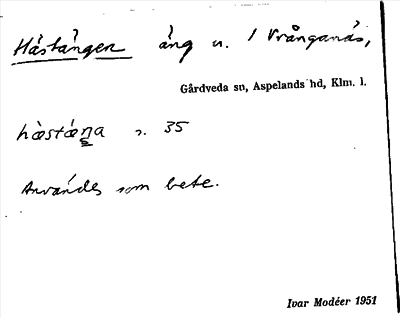 Hästängen äng u. 1 Vrånganäs,
Gårdveda sn, Aspelands hd, Klm. l.
hàstæŋa s. 35
Användes som bete.
Ivar Modéer 1951